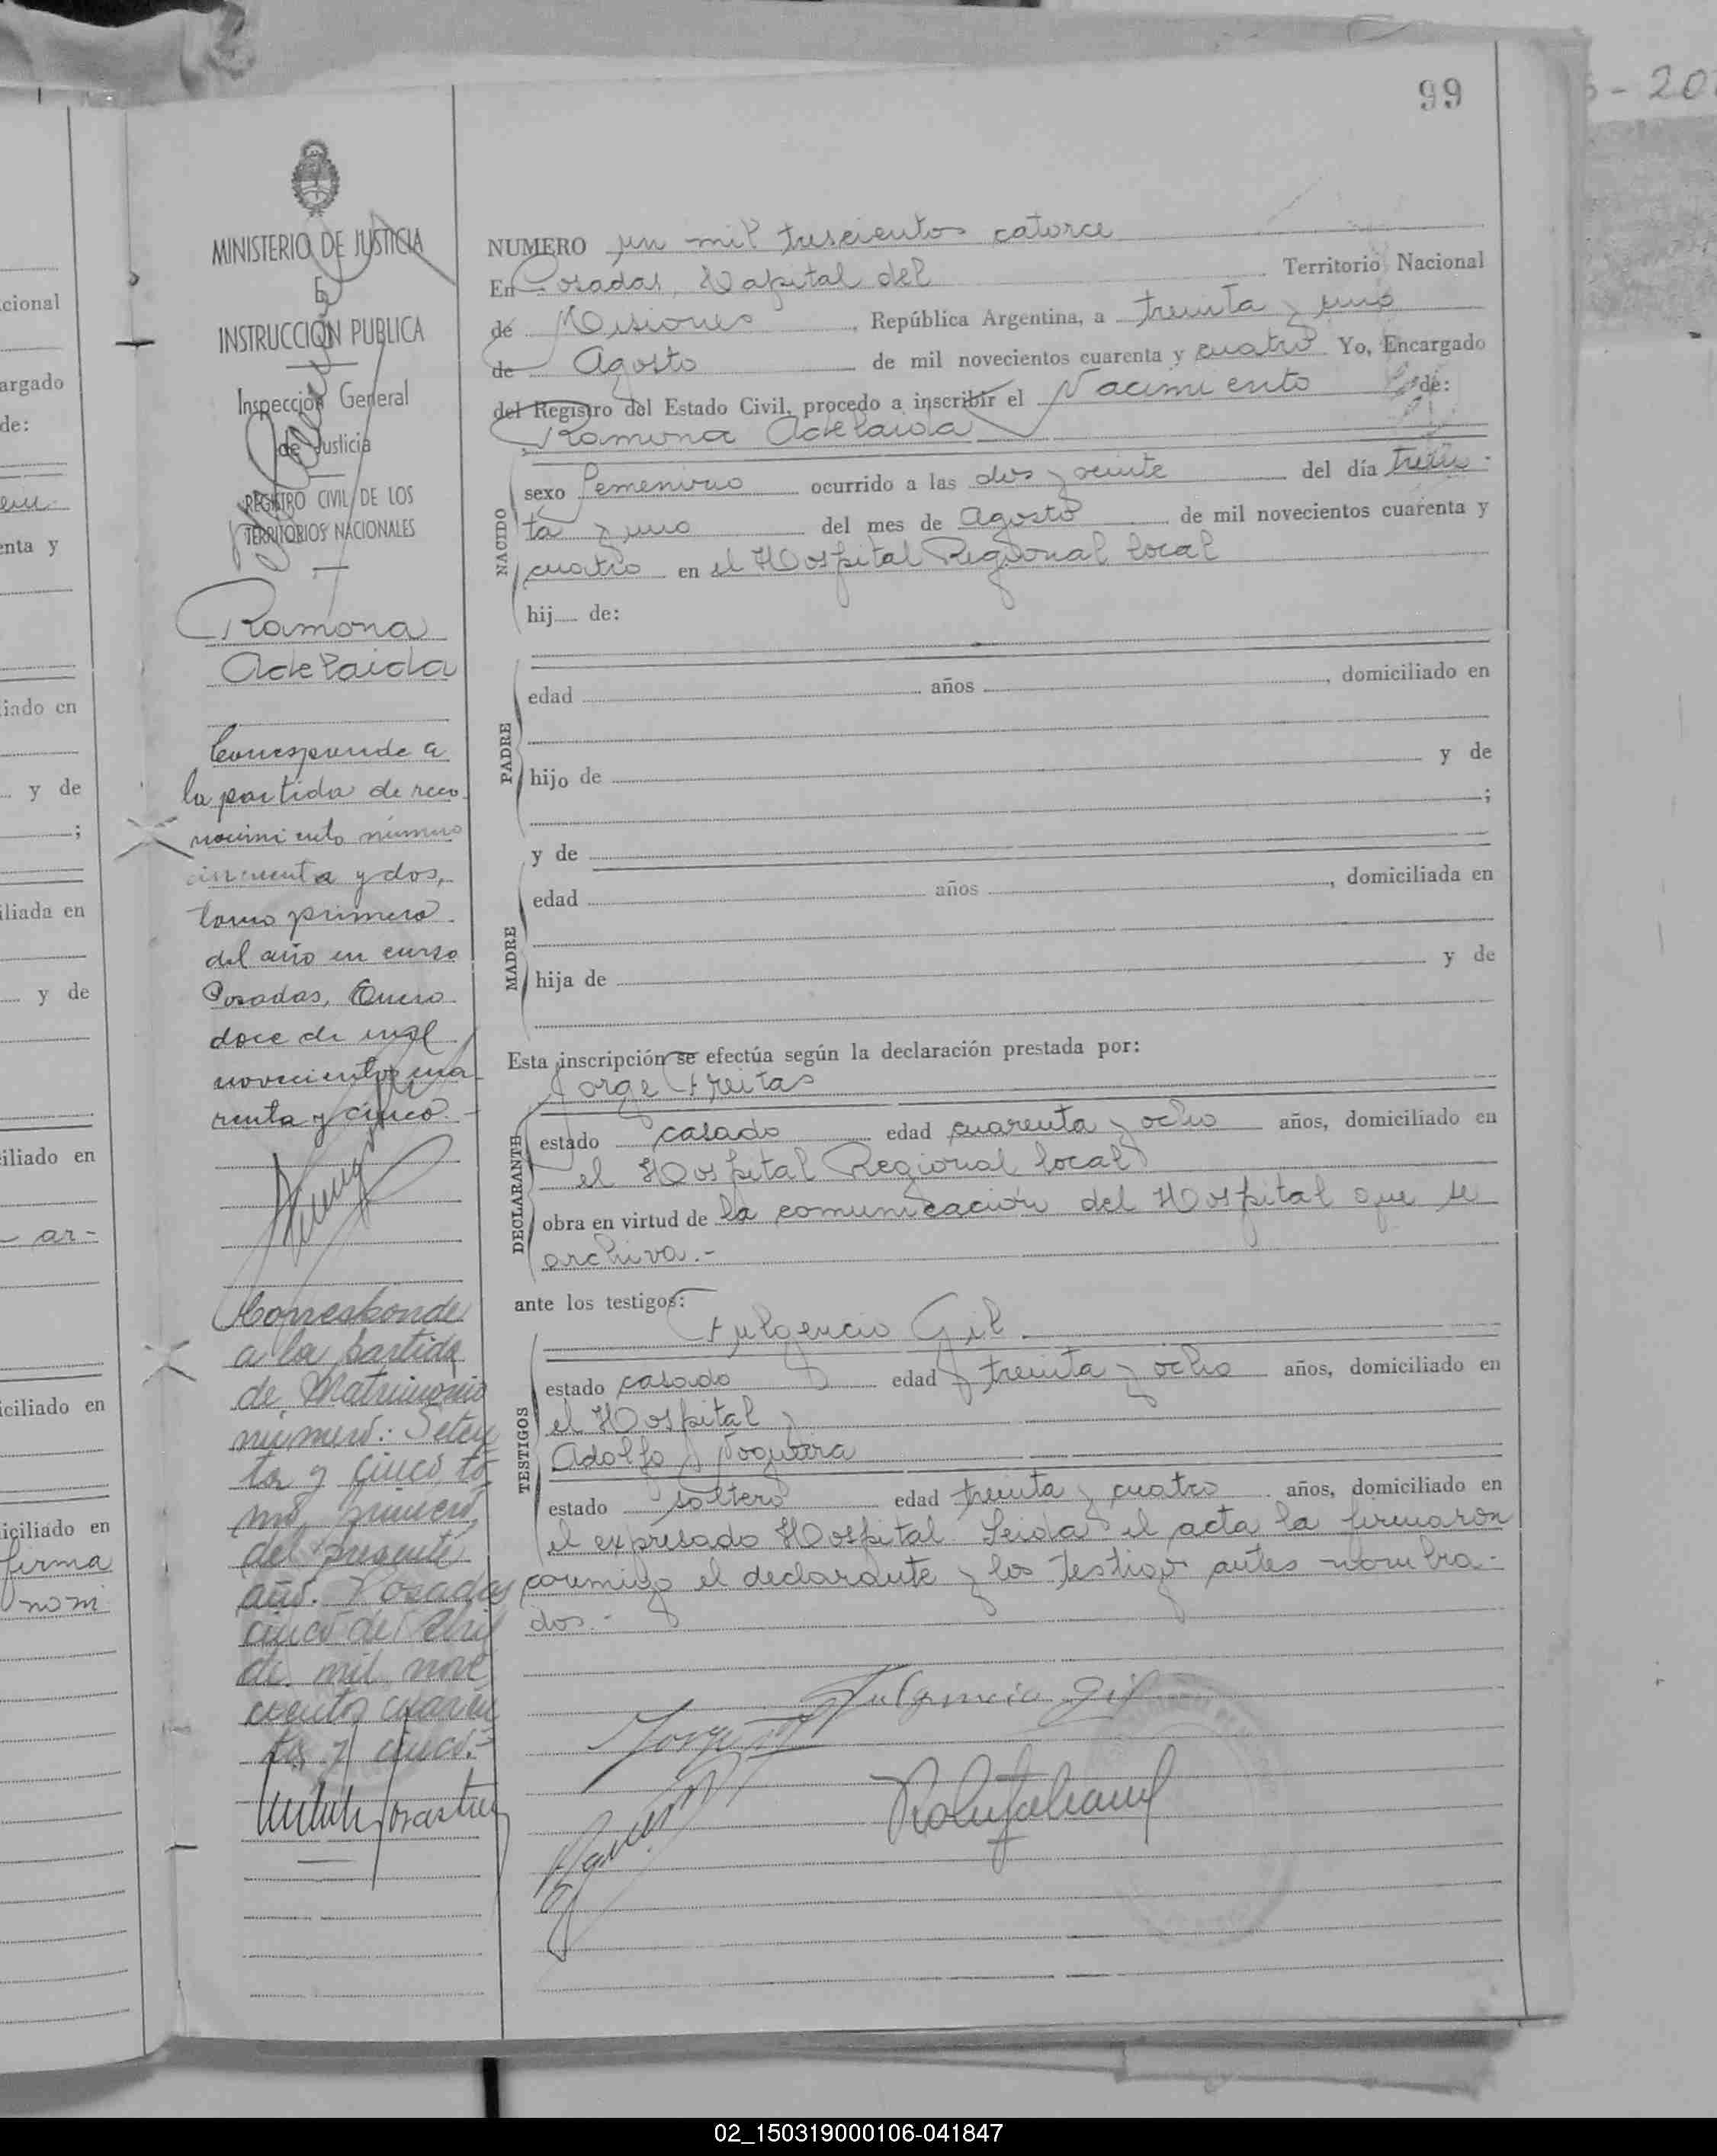 99
MINISTERIO DE JUSTICIA
E
INSTRUCCIÓN PUBLICA
Inspección General
de Justicia
REGISTRO CIVIL DE LOS
TERRITORIOS NACIONALES
Ramona
Adelaida
Corresponde a
la partida de reco
nocimiento número
cincuenta y dos,
tomo primero
del año en curso
Posadas, Enero
doce de mil
novecientos cua
renta y cinco.-
Corresponde
a la partida
de Matrimonio
número: Seten
ta y cinco to
mo primero
del presente
año. Posadas
cinco de Abril
de mil nove
cientos cuaren
ta y cinco.-
NUMERO un mil trescientos catorce
En Posadas, Capital del Territorio Nacional
de Misiones, República Argentina, a treinta y uno
de Agosto de mil novecientos cuarenta y cuatro Yo, Encargado
del Registro del Estado Civil, procedo a inscribir el Nacimiento de:
Ramona Adelaida
NACIDO
sexo femenino ocurrido a las dos y veinte del día trein-
ta y uno del mes de Agosto de mil novecientos cuarenta y
cuatro en el Hospital Regional local
hij.... de:
PADRE
edad años , domiciliado en
hijo de y de
;
y de
MADRE
edad años , domiciliada en
hija de y de
Esta inscripción se efectúa según la declaración prestada por:
Jorge Freitas
DECLARANTE
estado casado edad cuarenta y ocho años, domiciliado en
el Hospital Regional local
obra en virtud de la comunicación del Hospital que se
archiva.-
ante los testigos:
Fulgencio Gil
TESTIGOS
estado casado edad treinta y ocho años, domiciliado en
el Hospital y
Adolfo Noguera
estado soltero edad treinta y cuatro años, domiciliado en
el expresado Hospital. Leida el acta la firmaron
conmigo el declarante y los testigos antes nombra-
dos.-
Fulgencio Gil
cional
argado
de:
enta y
iado en
y de
;
iliada en
y de
iliado en
ar-
iciliado en
iciliado en
firma
02_150319000106-041847